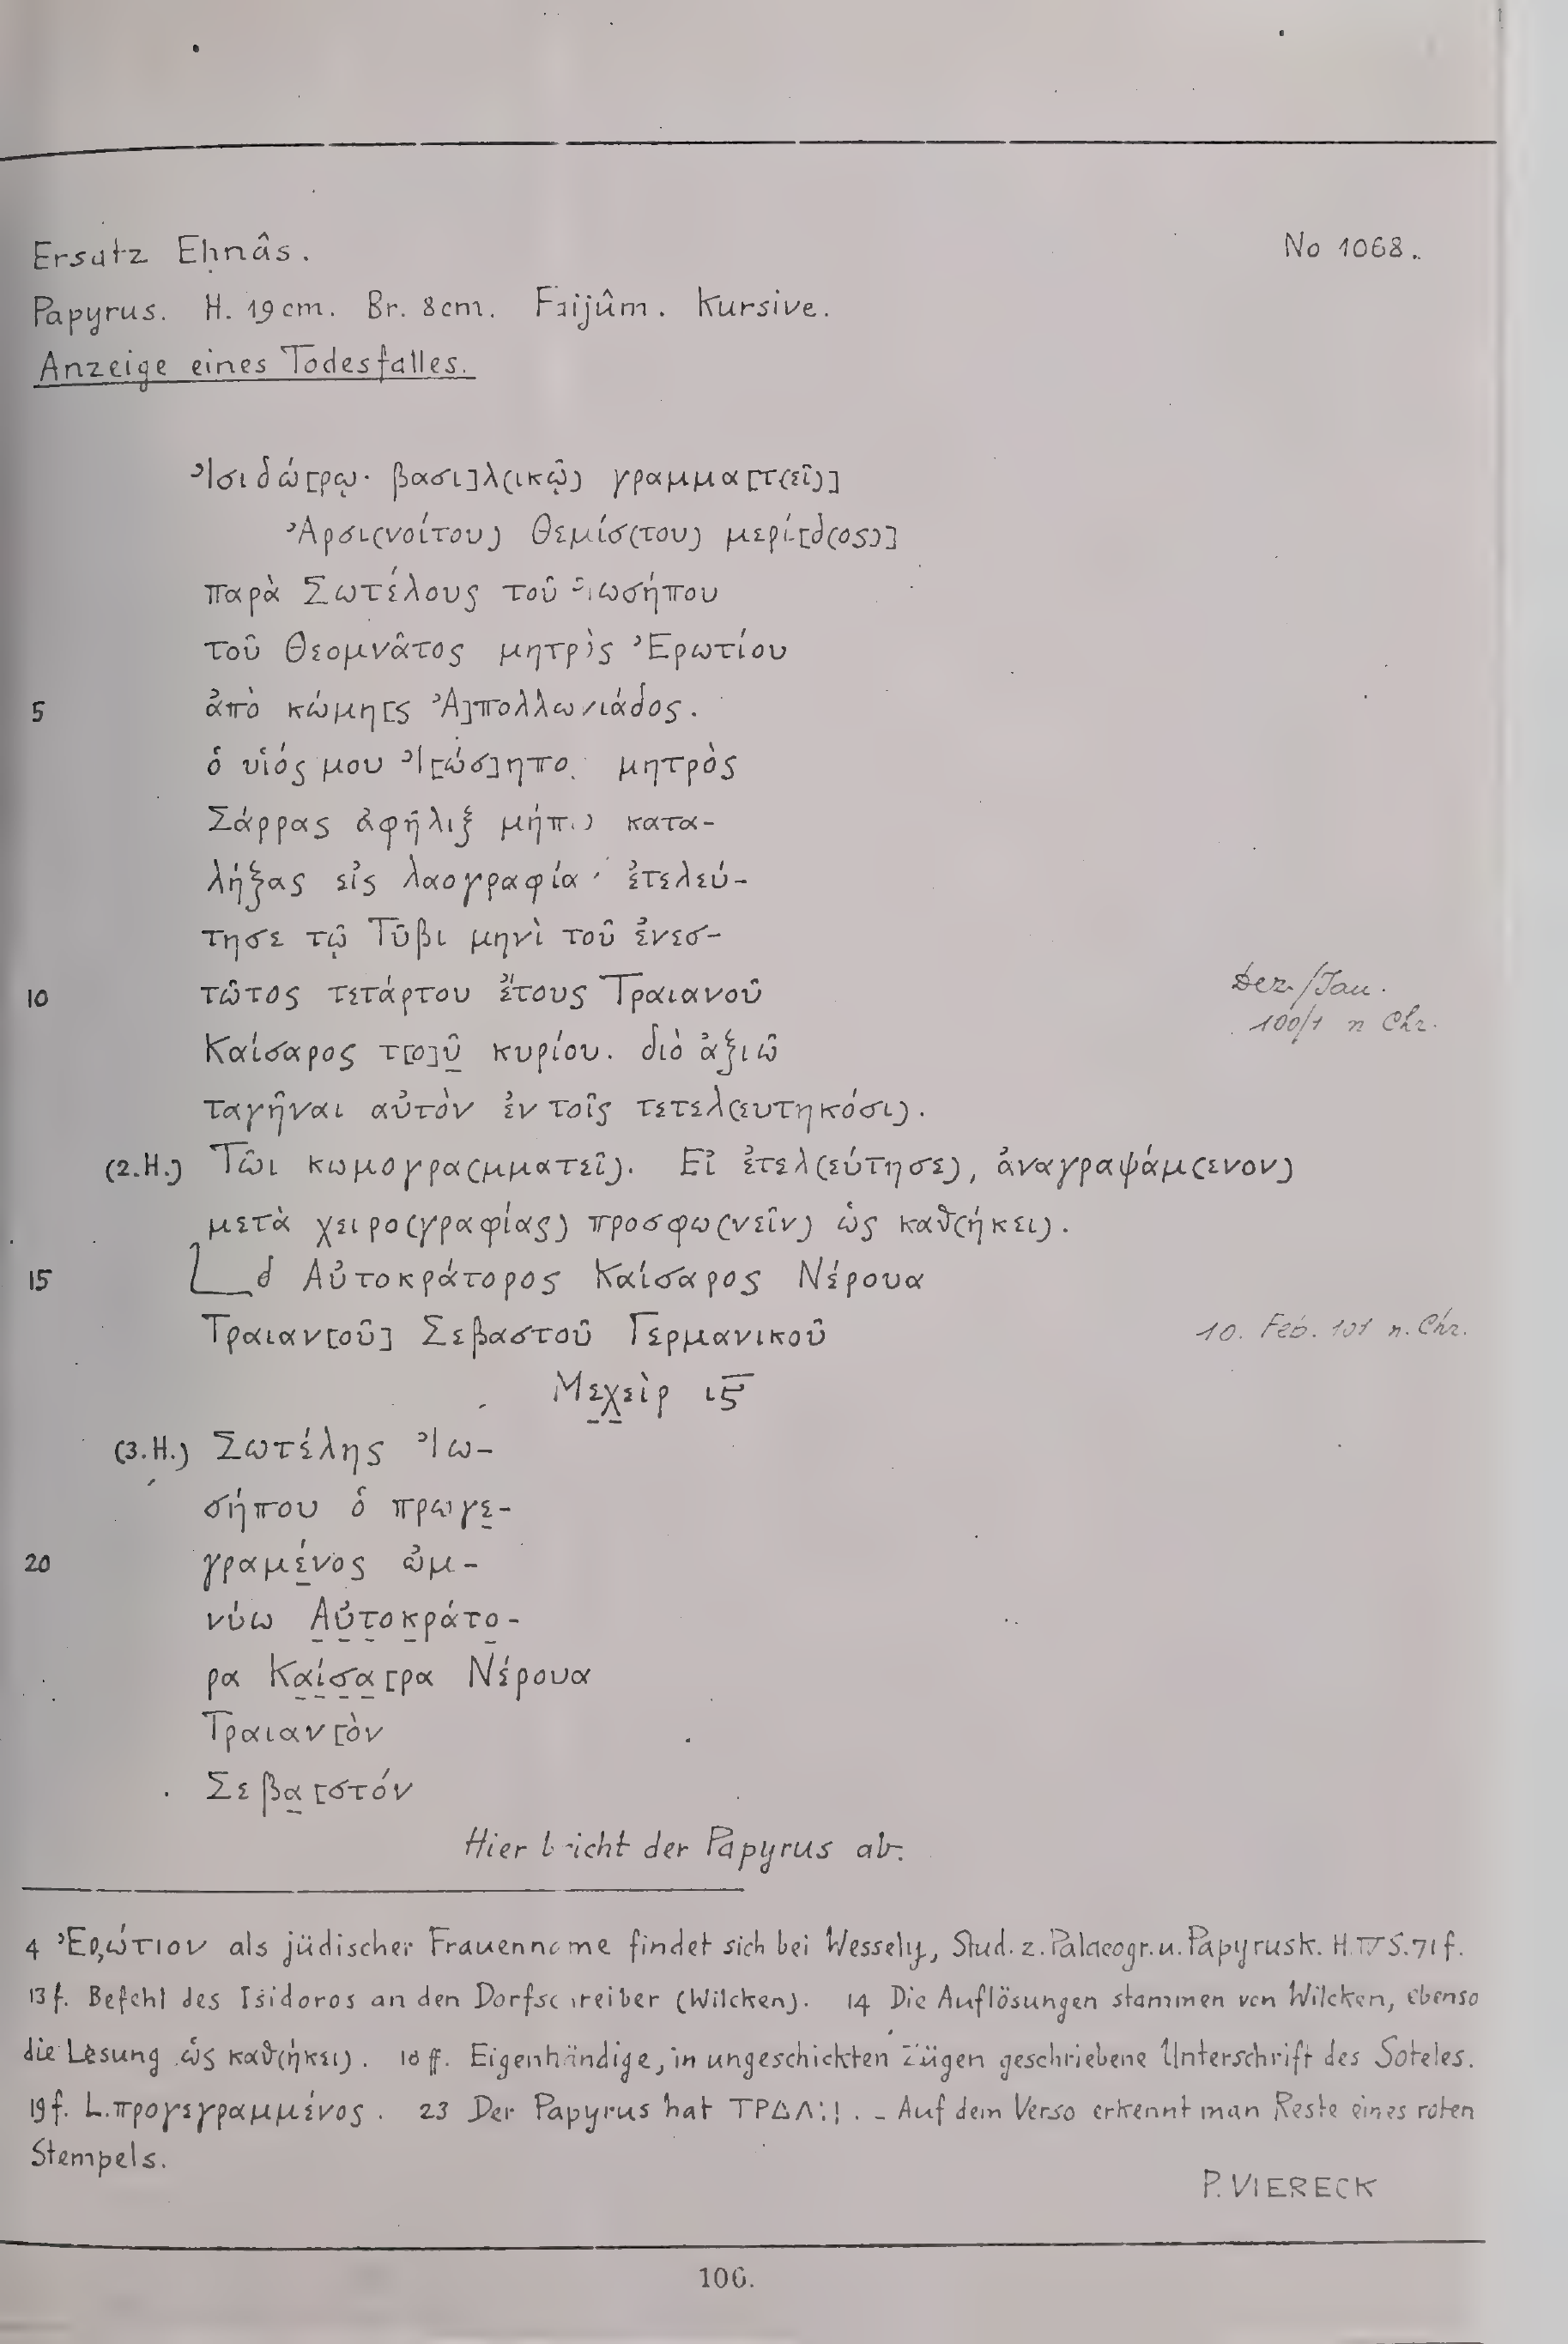 Ersatz Ehnâs.
No 1068.
Papyrus. H. 19cm. Br. 8cm. Faijûm. Kursive.
Anzeige eines Todesfalles.
Ἰσιδώ[ρῳ· βασι]λ(ικῷ) γραμμα[τ(εῖ)]
Ἀρσι(νοίτου) Θεμίσ(του) μερί[δ(ος)]
παρὰ Σωτέλους τοῦ Ἰωσήπου
τοῦ Θεομνᾶτος μητρὸς Ἐρωτίου
5 ἀπὸ κώμη[ς Ἀ]πολλωνιάδος.
ὁ υἱός μου Ἰ[ώσ]ηπο. μητρὸς
Σάρρας ἀφῆλιξ μήπω κατα-
λήξας εἰς λαογραφία ἐτελεύ-
τησε τῷ Τῦβι μηνὶ τοῦ ἐνεσ-
10 τῶτος τετάρτου ἔτους Τραιανοῦ
Dez./Jan.
100/1 n Chr.
Καίσαρος τ[ο]ῦ κυρίου. διὸ ἀξιῶ
ταγῆναι αὐτὸν ἐν τοῖς τετελ(ευτηκόσι).
(2.H.) Τῶι κωμογρα(μματεῖ). Εἰ ἐτελ(εύτησε), ἀναγραψάμ(ενον)
μετὰ χειρο(γραφίας) προσφω(νεῖν) ὡς καθ(ήκει).
15 L δ Αὐτοκράτορος Καίσαρος Νέρουα
Τραιαν[οῦ] Σεβαστοῦ Γερμανικοῦ
10. Feb. 101 n. Chr.
Μεχεὶρ ις̅
(3.H.) Σωτέλης Ἰω-
σήπου ὁ πρωγε-
20 γραμένος ὠμ-
νύω Αὐτοκράτο-
ρα Καίσα[ρα Νέρουα
Τραιαν[ὸν
Σεβα[στόν
Hier bricht der Papyrus ab.
4 Ἐρώτιον als jüdischer Frauenname findet sich bei Wessely, Stud. z. Palaeogr. u. Papyrusk. H. IV S. 71 f.
13 f. Befehl des Isidoros an den Dorfschreiber (Wilcken). 14 Die Auflösungen stammen von Wilcken, ebenso
die Lesung ὡς καθ(ήκει). 18 ff. Eigenhändige, in ungeschickten Zügen geschriebene Unterschrift des Soteles.
19 f. L. προγεγραμμένος. 23 Der Papyrus hat . – Auf dem Verso erkennt man Reste eines roten
Stempels.
P. VIERECK
106.